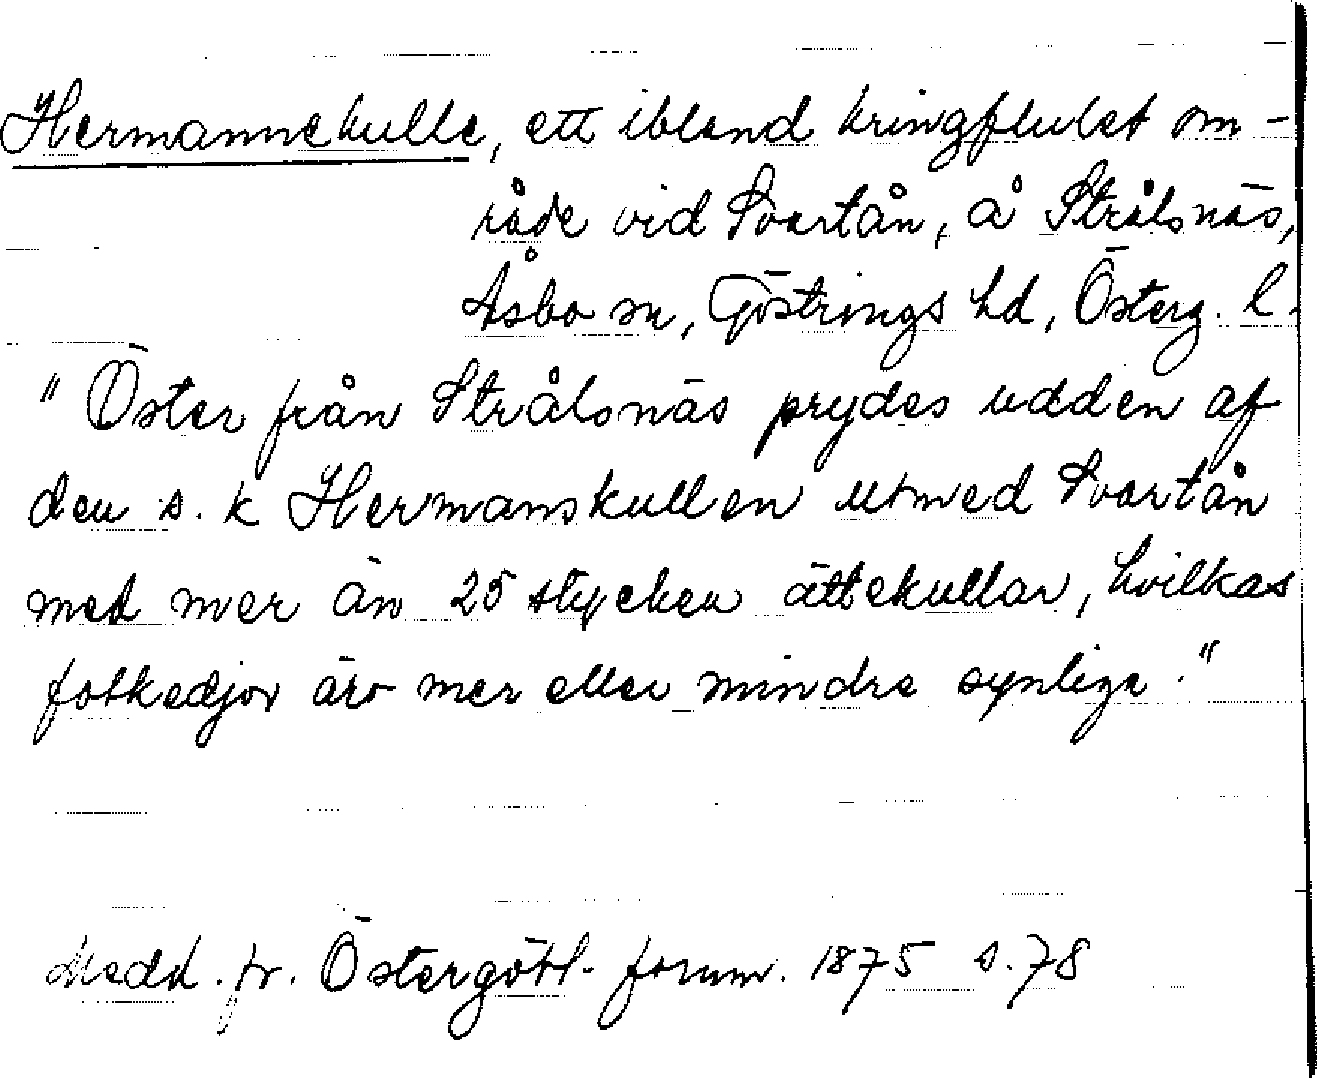 Hermannekulle, ett ibland kringflutet om-
råde vid Svartån, å Strålsnäs,
Åsbo sn, Göstrings hd, Österg. l.
" Öster från Strålsnäs prydes udden af
den s. k Hermanskullen utmed Svartån
med mer än 25 stycken ättekullar, hvilkas
fotkedjor äro mer eller mindre synliga."
Medd. fr. Östergötl. fornm. 1875 s. 78